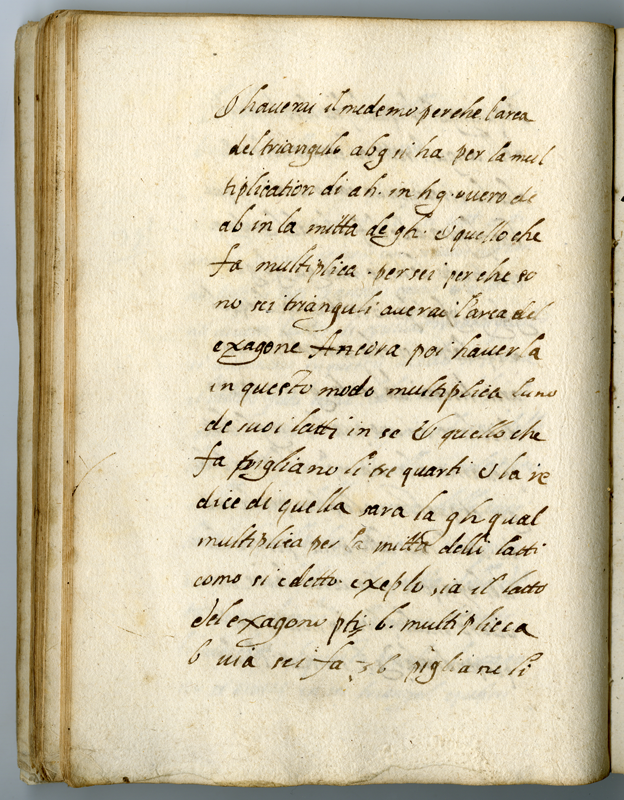 & haverai il medemo perche l'area
del triangulo abg si ha per la mul
tiplication di ah. in hg. overo de
ab in la mitta de gh. & quello che
fa multiplica per sei perche so
no sei trianguli averai l'area del
exagone Ancora poi haver la
in questo modo multiplica luno
de suoi latti in se & quello che
fa pigliano li tre quarti & la re
dice di quella sara la gh qual
multiplica per la mitta delli latti
como si e detto. exeplo sia il latto
del exagono pti 6. multiplicca
6 via sei fa 36 pigliane li